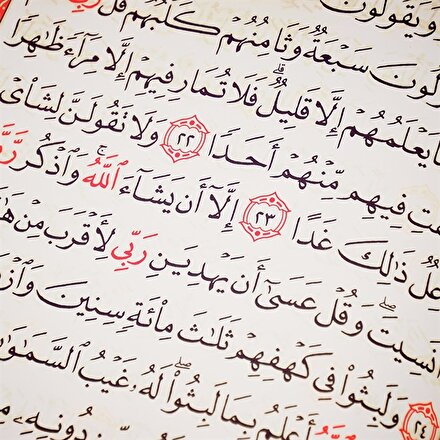 وَيَقُولُونَ
ولُونَ سَبْعَةٌ وَثَامِنُهُمْ كَلْبُهُمْ قُل
يَعْلَمُهُمْ إِلَّا قَلِيلٌ ۗ فَلَا تُمَارِ فِيهِمْ إِلَّا مِرَآءً ظَٰهِرًا
تِ فِيهِم مِّنْهُمْ أَحَدًا ٢٢ وَلَا تَقُولَنَّ لِشَا۟ىْ
عِلٌ ذَٰلِكَ غَدًا ٢٣ إِلَّآ أَن يَشَآءَ ٱللَّهُ ۚ وَٱذْكُر رَّبَّ
نَسِيتَ ۖ وَقُلْ عَسَىٰٓ أَن يَهْدِيَنِ رَبِّى لِأَقْرَبَ مِنْ هَٰ
٢٤ وَلَبِثُوا۟ فِى كَهْفِهِمْ ثَلَٰثَ مِا۟ئَةٍ سِنِينَ وَٱزْدَ
أَعْلَمُ بِمَا لَبِثُوا۟ ۖ لَهُۥ غَيْبُ ٱلسَّمَٰوَٰ
ن دُونِهِۦ مِ